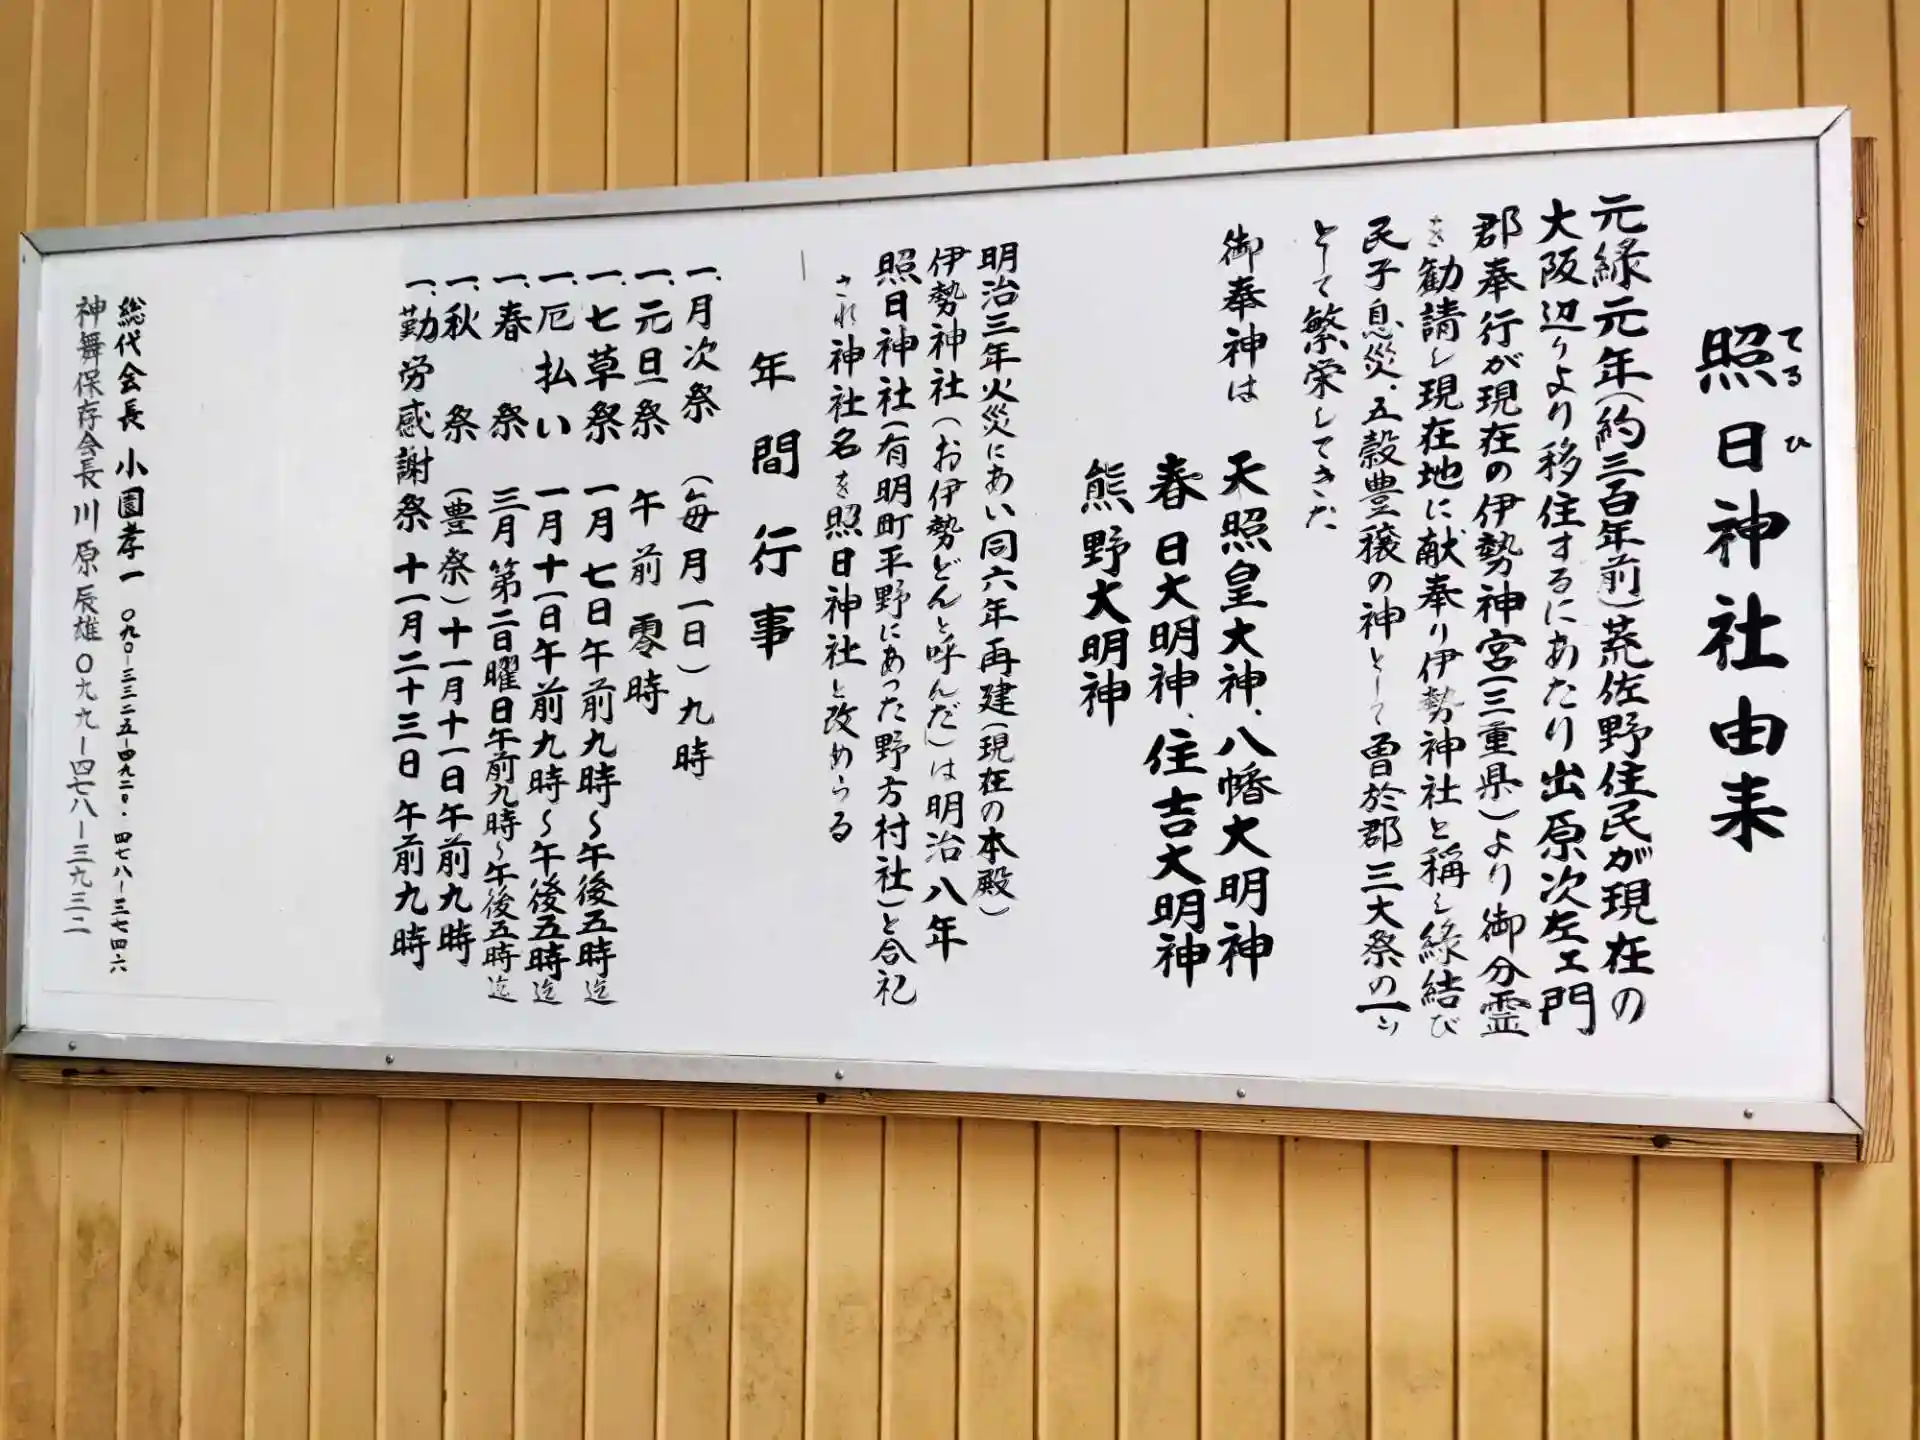 照日神社由来
てるひ
元緑元年(約三百年前)荒佐野住民が現在の
大阪辺りより移住するにあたり出原次左エ門
郡奉行が現在の伊勢神宮(三重県)より御分霊
を勧請し現在地に献奉り伊勢神社と稱し緑結び
民子息災、五穀豊穣の神として曽於郡三大祭の一つ
として繁栄してきた
御奉神は 天照皇大神、八幡大明神
春日大明神、住吉大明神
熊野大明神
明治三年火災にあい同六年再建(現在の本殿)
伊勢神社(お伊勢どんと呼んだ)は明治八年
照日神社(有明町平野にあった野方村社)と合祀
され神社名を照日神社と改めらる
年間行事
一、月次祭 (毎月一日)九時
一、元旦祭 午前零時
一、七草祭 一月七日午前九時〜午後五時迄
一、厄払い 一月十一日午前九時〜午後五時迄
一、春祭 三月第二日曜日午前九時〜午後五時迄
一、秋祭(豊祭)十一月十一日午前九時
一、勤労感謝祭 十一月二十三日 午前九時
総代会長 小園孝一 〇九〇-三三二五-四九二〇・四七八-三七四六
神舞保存会長 川原辰雄 〇九九-四七八-三九三二